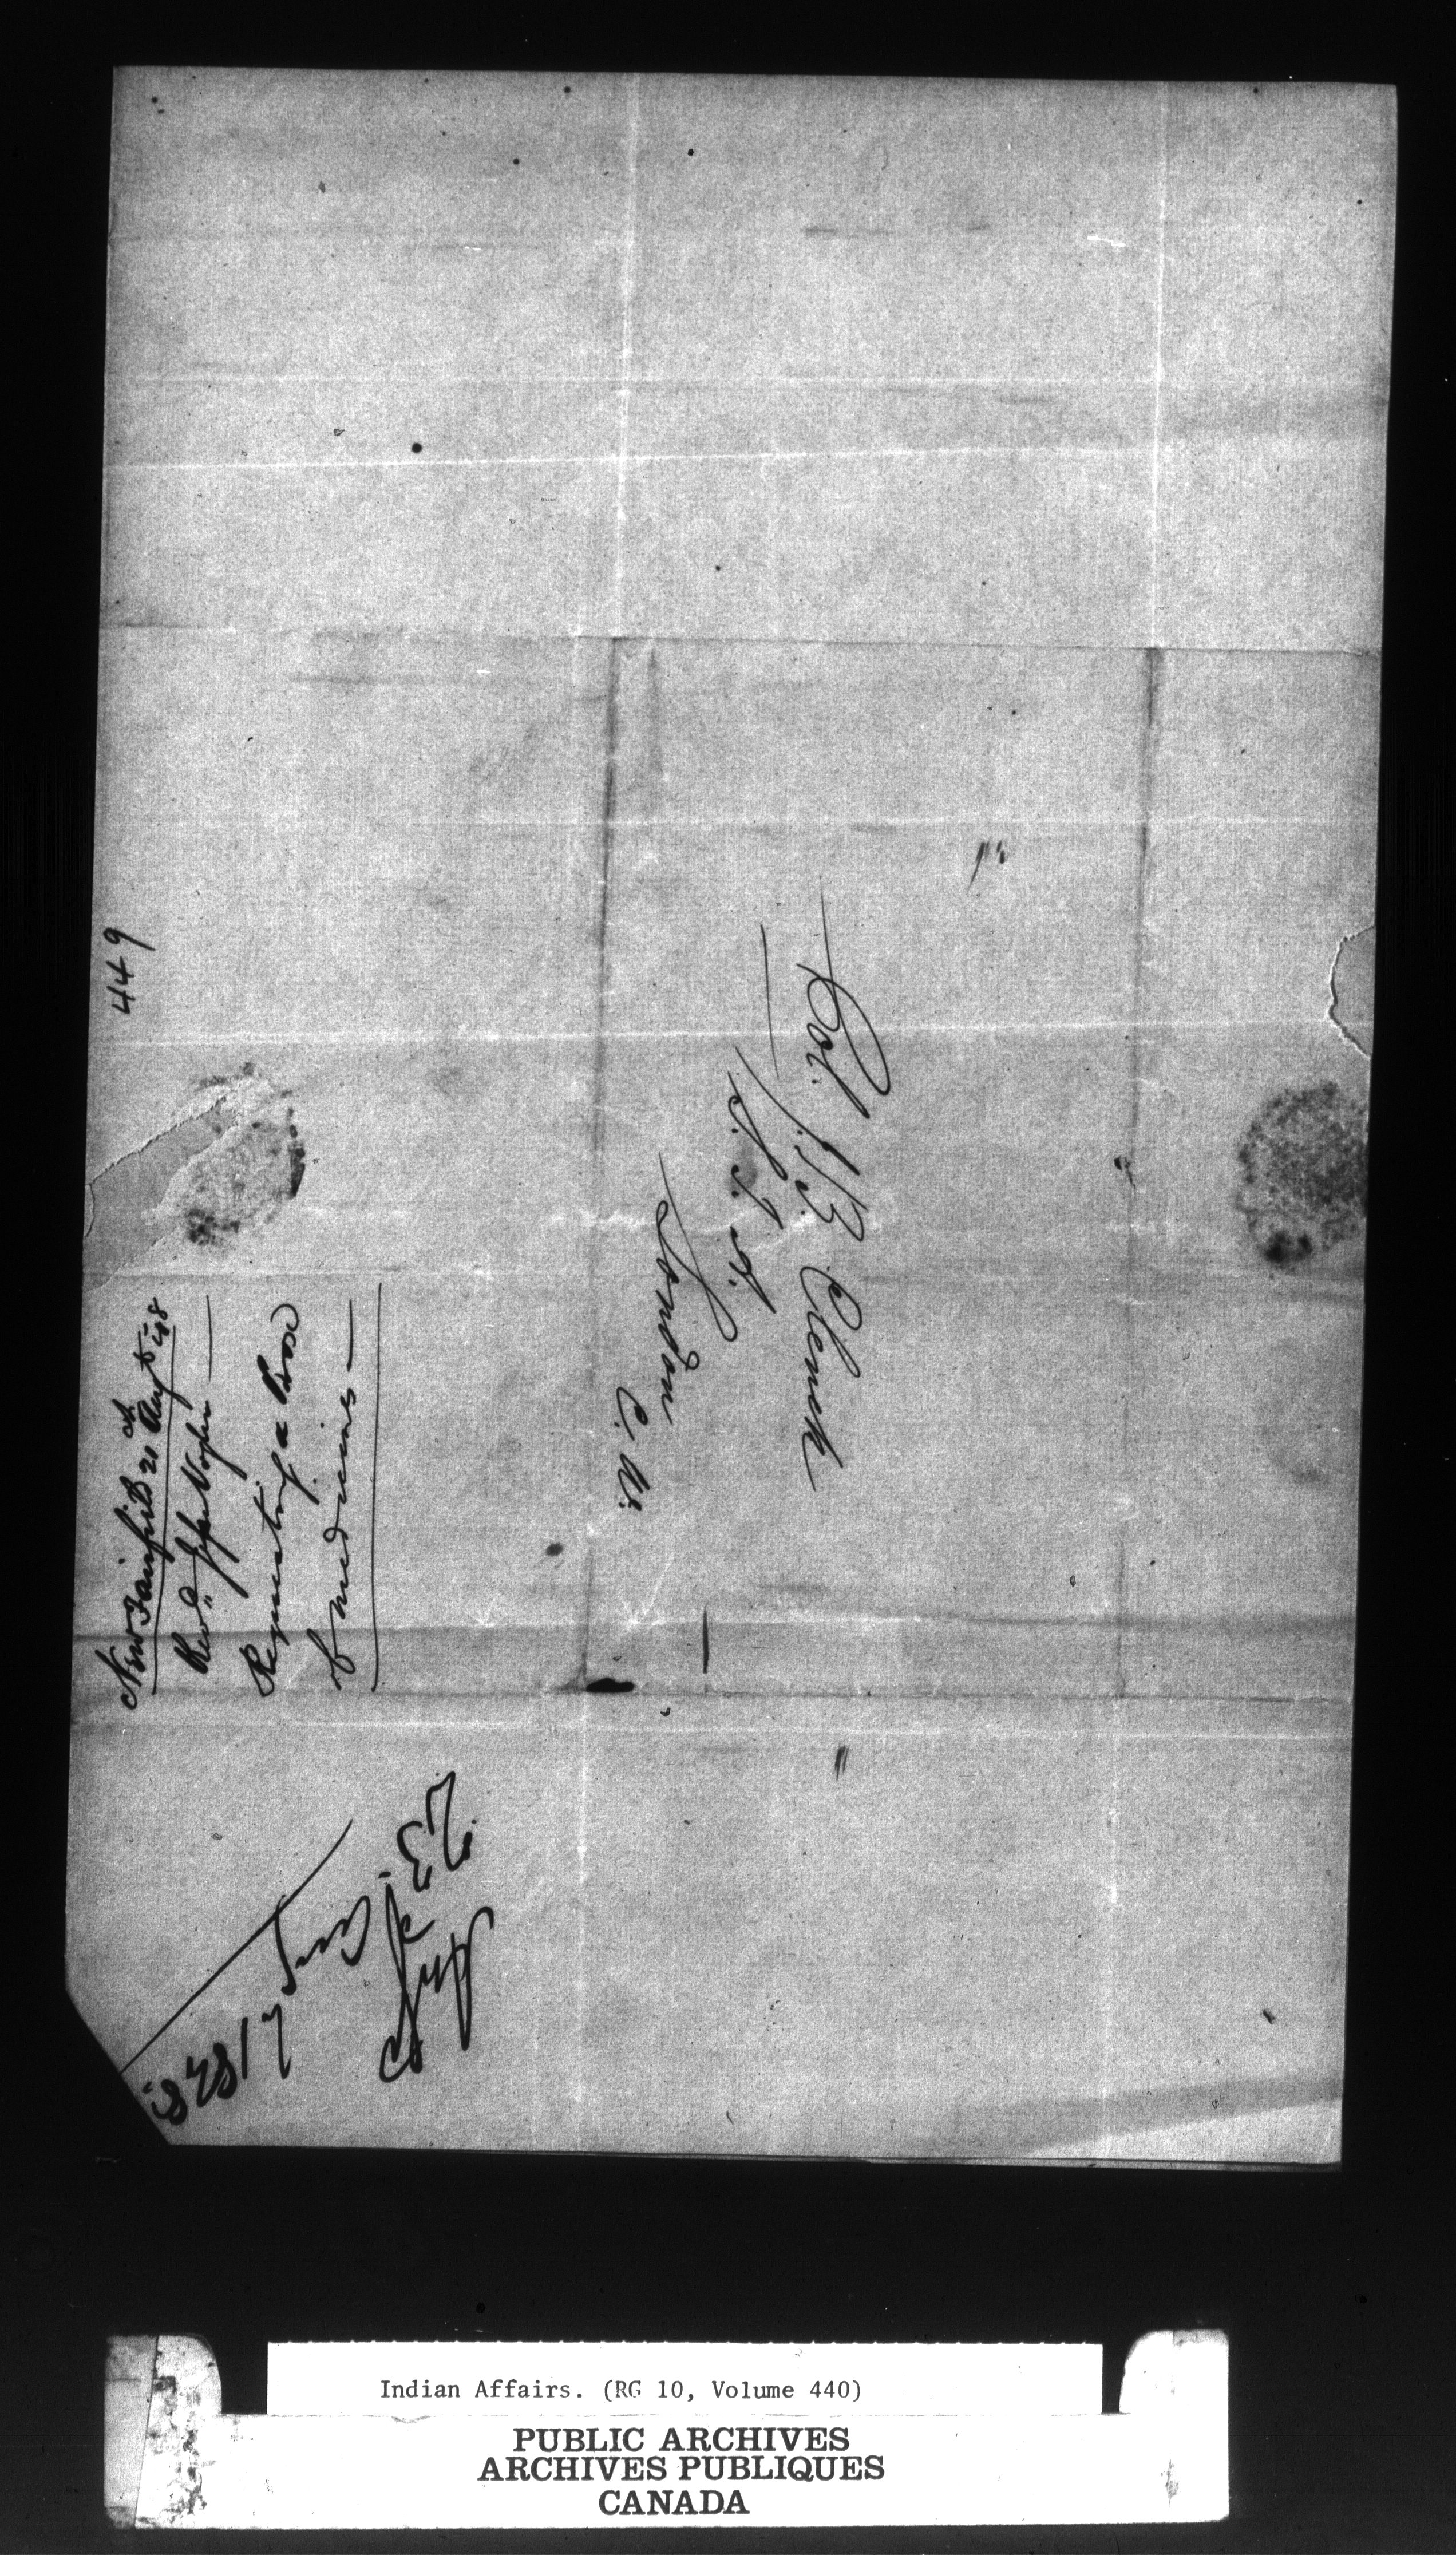 449
Col. J. B. Clench
S. I. A.
London
C. W.
New Fairfield 20th Augt 48
Revd Jesse Vogler
Requesting a Box
of medicines
Indian Affairs. (RG 10, Volume 440)
PUBLIC ARCHIVES
ARCHIVES PUBLIQUES
CANADA